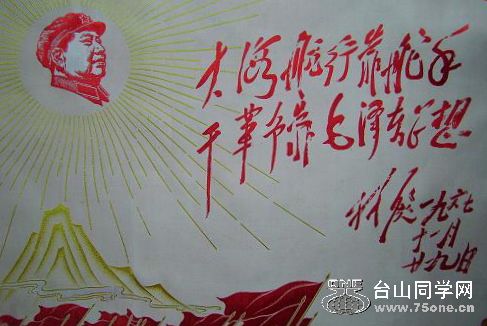 大海航行靠舵手
干革命靠毛泽东思想
林彪 一九六七
十一月
廿九日
台山同学网
www.75one.cn